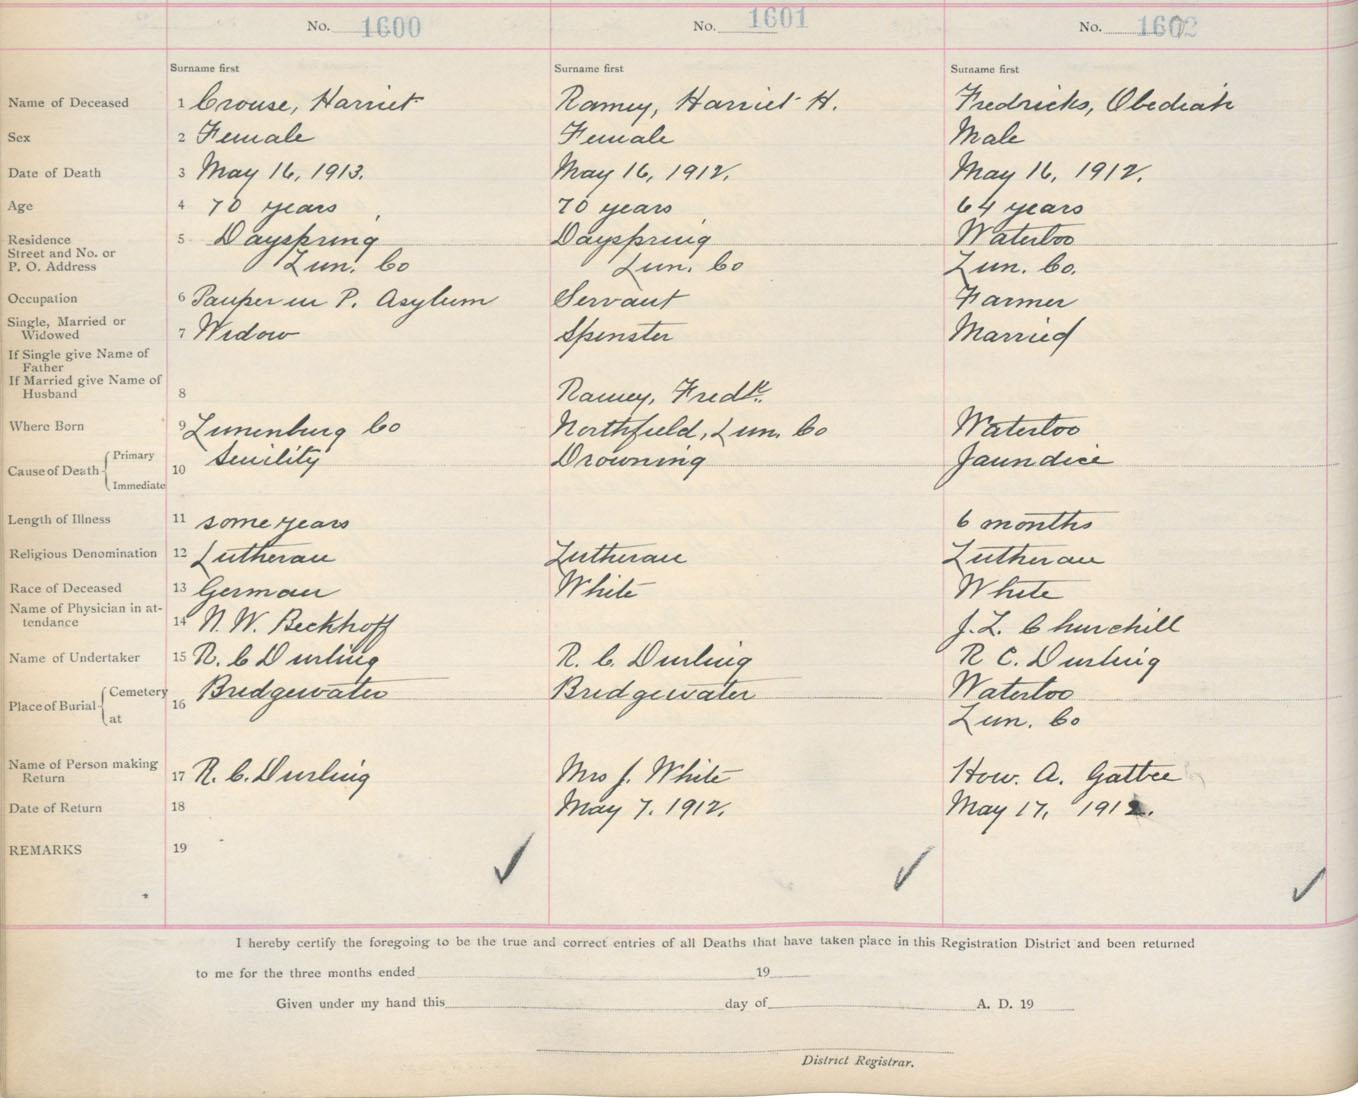 No. 1600
No. 1601
No. 1602
Surname first
Surname first
Surname first
Name of Deceased 1 Crouse, Harriet Ramey, Harriet H. Fredricks, Obediah
Sex 2 Female Female Male
Date of Death 3 May 16, 1913. May 16, 1912. May 16, 1912.
Age 4 70 years 70 years 64 years
Residence 5 Dayspring Dayspring Waterloo
Street and No. or
P. O. Address Lun. Co Lun. Co Lun. Co.
Occupation 6 Pauper in P. Asylum Servant Farmer
Single, Married or
Widowed 7 Widow Spinster Married
If Single give Name of
Father
If Married give Name of
Husband 8 Ramey, Fredk.
Where Born 9 Lunenburg Co Northfield, Lun. Co Waterloo
Cause of Death Primary 10 Senility Drowning Jaundice
Immediate
Length of Illness 11 some years 6 months
Religious Denomination 12 Lutheran Lutheran Lutheran
Race of Deceased 13 German White White
Name of Physician in at-
tendance 14 N. W. Beckhoff J. L. Churchill
Name of Undertaker 15 R. C Durling R. C. Durling R C. Durling
Place of Burial Cemetery 16 Bridgewater Bridgewater Waterloo
at Lun. Co
Name of Person making
Return 17 R. C. Durling Mrs J. White How. A.
Date of Return 18 May 7. 1912. May 17, 1912.
REMARKS 19
I hereby certify the foregoing to be the true and correct entries of all Deaths that have taken place in this Registration District and been returned
to me for the three months ended 19
Given under my hand this day of A. D. 19
District Registrar.